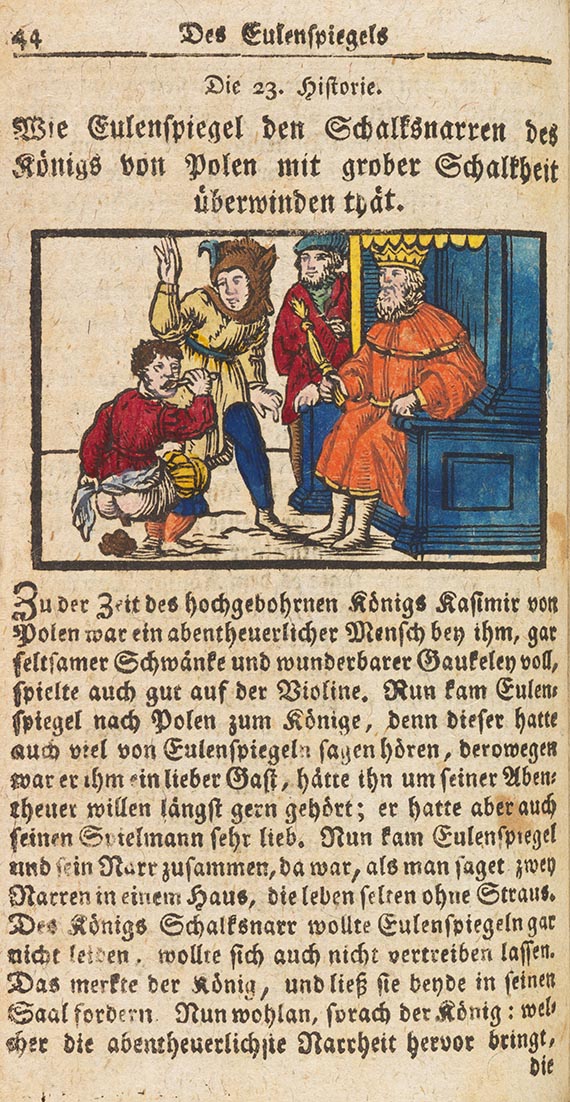 44 Des Eulenspiegels
Die 23. Historie.
Wie Eulenspiegel den Schalksnarren des
Königs von Polen mit grober Schalkheit
überwinden thät.
Zu der Zeit des hochgebohrnen Königs Kasimir von
Polen war ein abentheuerlicher Mensch bey ihm, gar
seltsamer Schwänke und wunderbarer Gaukeley voll,
spielte auch gut auf der Violine. Nun kam Eulen-
spiegel nach Polen zum Könige, denn dieser hatte
auch viel von Eulenspiegeln sagen hören, derowegen
war er ihm ein lieber Gast, hätte ihn um seiner Aben-
theuer willen längst gern gehört; er hatte aber auch
seinen Spielmann sehr lieb. Nun kam Eulenspiegel
und sein Narr zusammen, da war, als man saget zwey
Narren in einem Haus, die leben selten ohne Straus.
Des Königs Schalksnarr wollte Eulenspiegeln gar
nicht leiden, wollte sich auch nicht vertreiben lassen.
Das merkte der König, und ließ sie beyde in seinen
Saal fordern. Nun wohlan, sprach der König: wel-
cher die abentheuerlichste Narrheit hervor bringt,
die